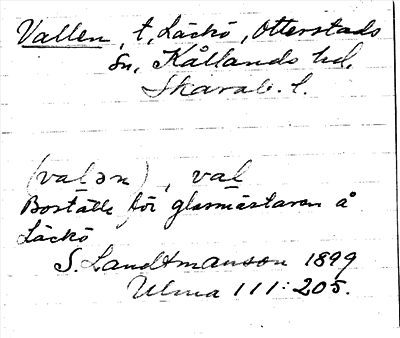 Vallen, t, Läckö, Otterstads
sn, Kållands hd,
Skarab. l.
(valən), val
Boställe för glasmästaren å
Läckö
S. Landtmanson 1899
Ulma 111:205.